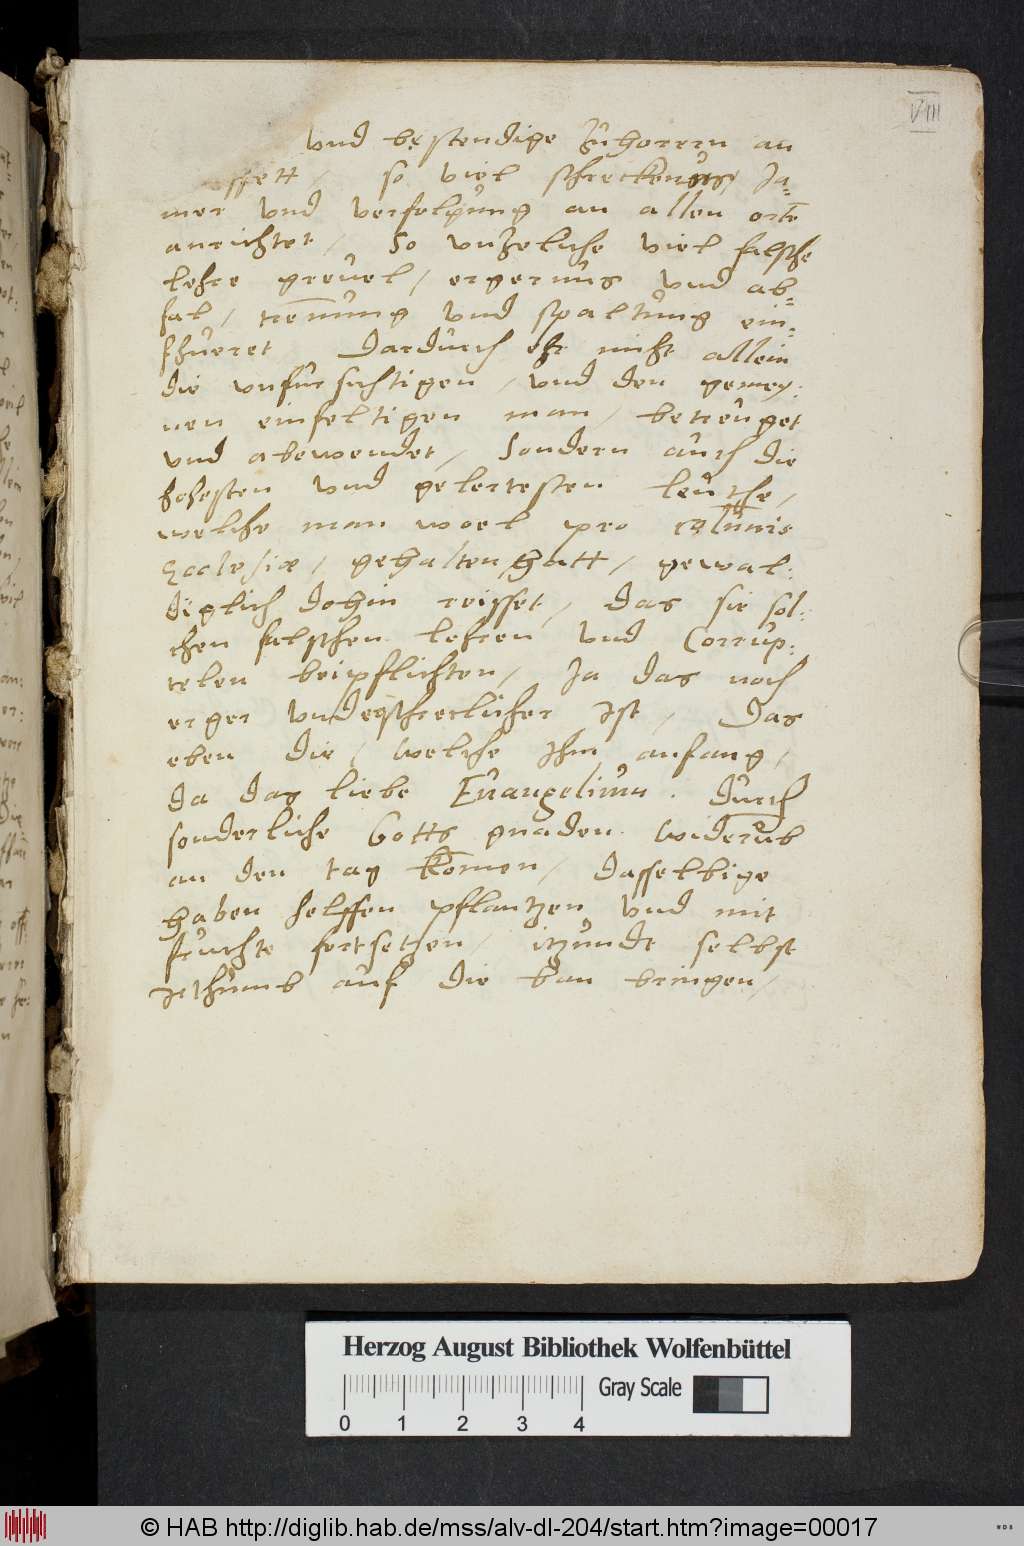 VIII
vnd bestendige Zuhorern an
ssett, so viel schreckenns Ja=
mer vnd verfolgung an allen orte
anrichtet, So vnzeliche viel falsche
lehre greuel, ergernus vnd ab=
fal, trennung vnd spaltung ein=
fhueret Dardurch ehr nicht allein
die vnfursichtigen, vnd den gemey:
nen einfeltigen man, betreuget
vnd abewendet, Sondern auch die
hohesten vnd gelertesten leuthe,
welche man woel pro colunis
Ecclesiæ, gehalten hatt, gewal:
diglich dohin reisset, das sie sol:
chen falschen lehren vnd Corrup:
telen beipflichten, Ja das noch
erger vnd erschrecklicher Ist, Das
eben die, welche Ihm anfang,
da das liebe Euangelium. Durch
sonderliche Gotts gnaden widerub
an den tag komen, dasselbige
haben helffen pflantzen vnd mit
fruchte fortsetzen, itzundt selbst
Irthumb auf die ban bringen,
Herzog August Bibliothek Wolfenbüttel
Gray Scale
0 1 2 3 4
© HAB http://diglib.hab.de/mss/alv-dl-204/start.htm?image=00017